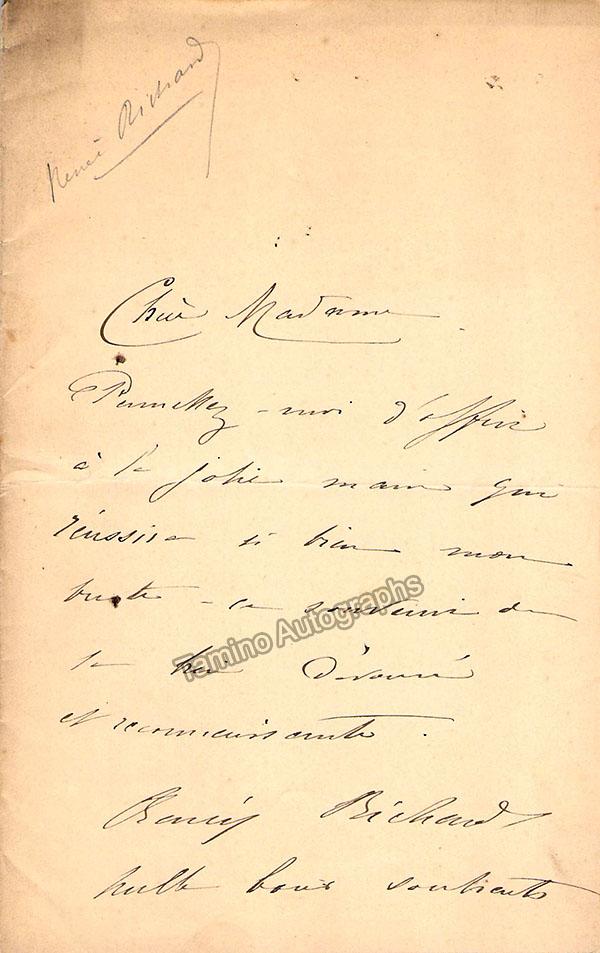 Renée Richard
Chère Madame
Permettez-moi d'offrir
à la jolie main qui
réussira si bien mon
buste - ce souvenir de
la très dévouée
et reconnaissante.
Renée Richard
mille bons souhaits
Tamino Autographs